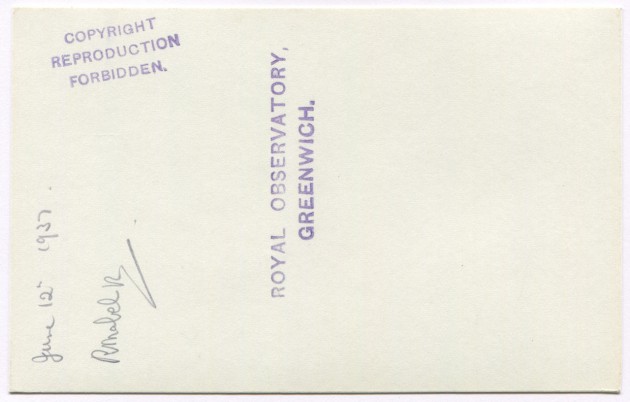 COPYRIGHT
REPRODUCTION
FORBIDDEN.
ROYAL OBSERVATORY,
GREENWICH.
June 12 1937.